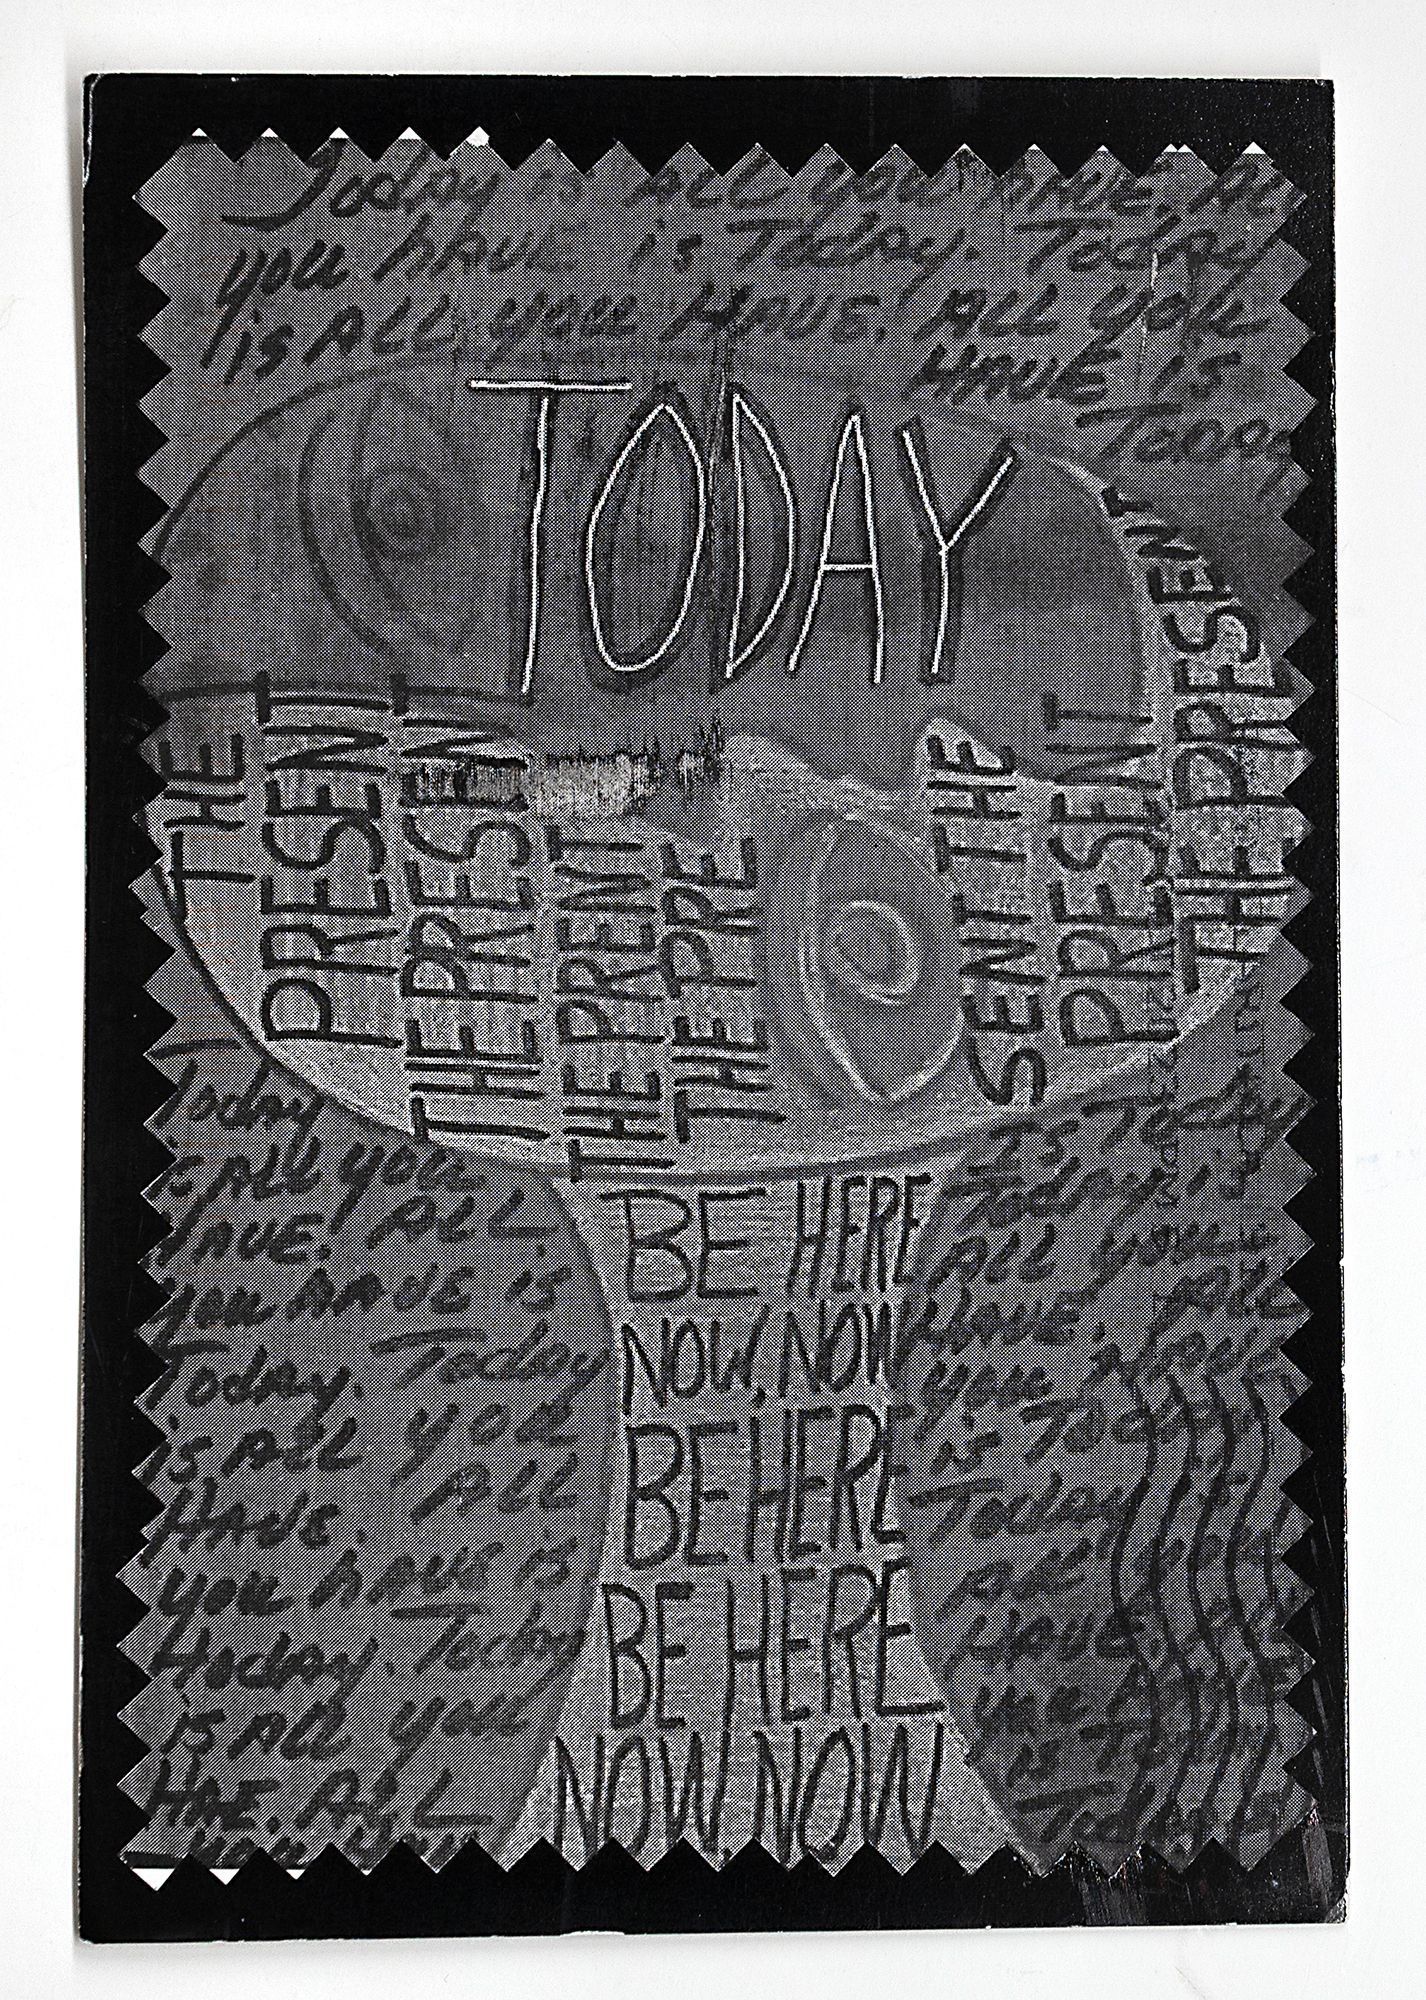 Today is ALL you HAVE. ALL
you HAVE is Today. Today
is ALL you HAVE. ALL you
HAVE is
Today
TODAY
THE
THE PRESENT
THE PRESENT
THE PRENT
THE PRE
SENT THE
PRESENT
THE PRESENT
THE PRESENT
Today
is ALL you
HAVE. ALL
you HAVE is
Today. Today
is ALL you
HAVE. ALL
you HAVE is
Hoday. Today
is ALL you
HAE. ALL
you
BE HERE
NOW, NOW
BE HERE
BE HERE
NOW. NOW
is Today
Today is
ALL you
HAVE. ALL
you HAVE
is Today
Today
ALL
HAVE
is
Today